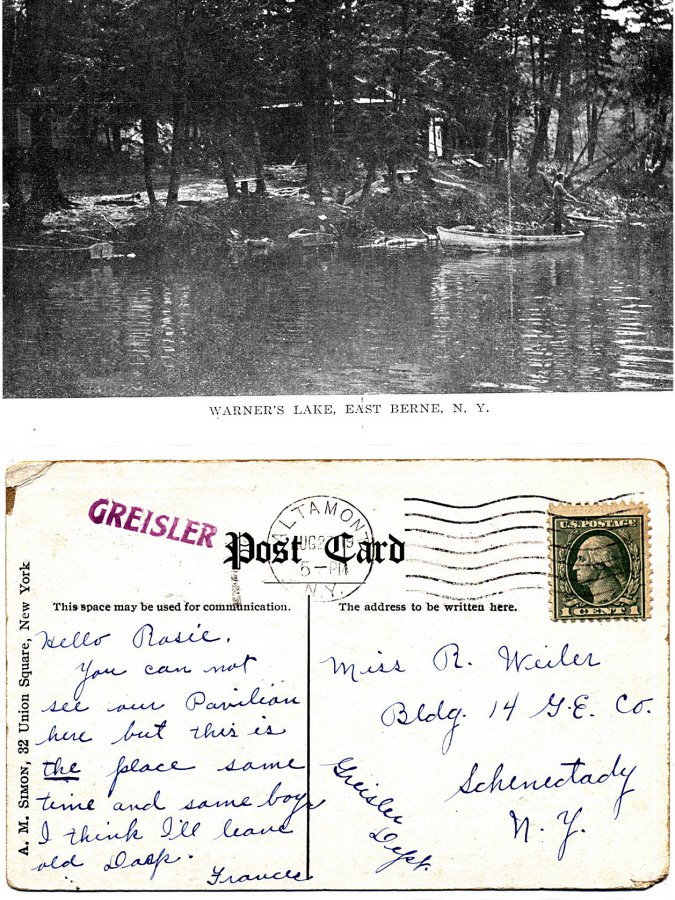 WARNER'S LAKE, EAST BERNE, N. Y.
GREISLER
Post Card
ALTAMONT
AUG 2 19
5-PM
N.Y.
U.S. POSTAGE
1 CENT 1
A. M. SIMON, 32 Union Square, New York
This space may be used for communication.
The address to be written here.
Hello Rosie,
You can not
see our Pavilion
here but this is
the place some
time and some boys
I think I'll leave
old
Frances
Miss R. Weiler
Bldg. 14 G.E. Co.
Schenectady
N. Y.
Greisler
Dept.